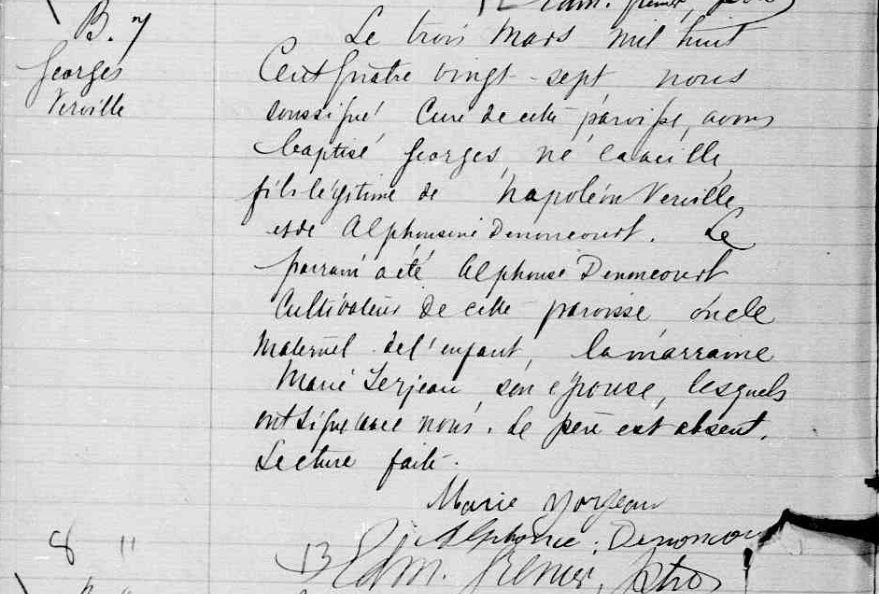 Edm. Grenier, Ptre
B. 7
Georges
Verville
Le trois Mars mil huit
Cent quatre vingt-sept nous
soussigné Curé de cette paroisse, avons
baptisé Georges, né la veille,
fils légitime de Napoléon Verville
et de Alphonsine Denoncourt. Le
parrain a été Alphonse Denoncourt
Cultivateur de cette paroisse oncle
Maternel de l'enfant, la marraine
Marie son épouse, lesquels
ont signé avec nous. Le père est absent.
Lecture faite.
Marie
Alphonse Denoncourt
Edm. Grenier, Ptre
8 "